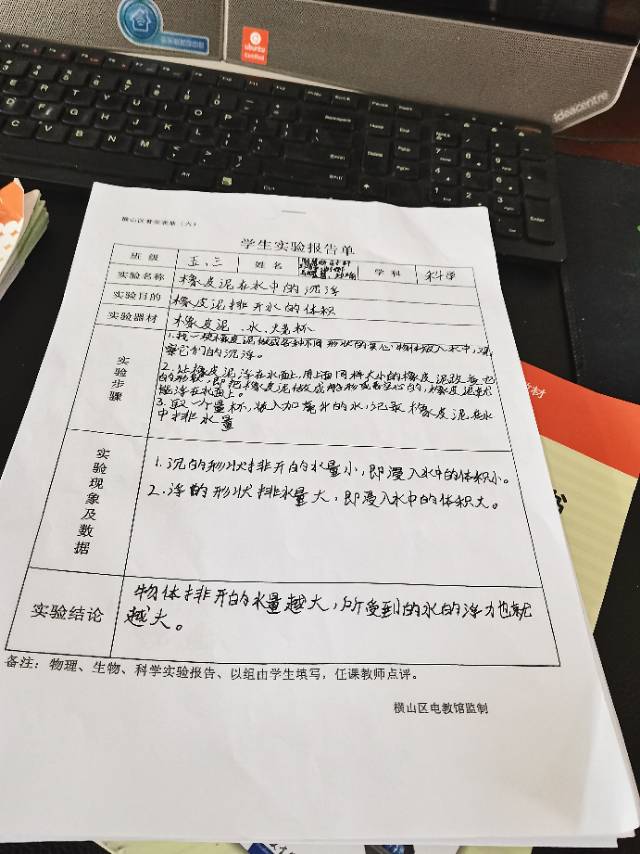 ubuntu
Certified
ideacentre
学生实验报告单
班级 五.三 姓名 学科 科学
实验名称 橡皮泥在水中的沉浮
实验目的 橡皮泥排开水的体积
实验器材 橡皮泥、水、烧杯
实验步骤
1.找一块橡皮泥做成各种不同形状的实心物体放入水中,观
察它们的沉浮。
2.让橡皮泥浮在水面上,用上面同样大小的橡皮泥改变它
的形状,即把橡皮泥做成船形或者空心的,橡皮泥就
能浮在水面上。
3.取一个量杯,放入加毫升的水,记录橡皮泥在水
中排水量
实验现象及数据
1.沉的形状排开的水量小,即浸入水中的体积小。
2.浮的形状排水量大,即浸入水中的体积大。
实验结论
物体排开的水量越大,所受到的水的浮力也就
越大。
备注:物理、生物、科学实验报告、以组由学生填写,任课教师点评。
横山区电教馆监制